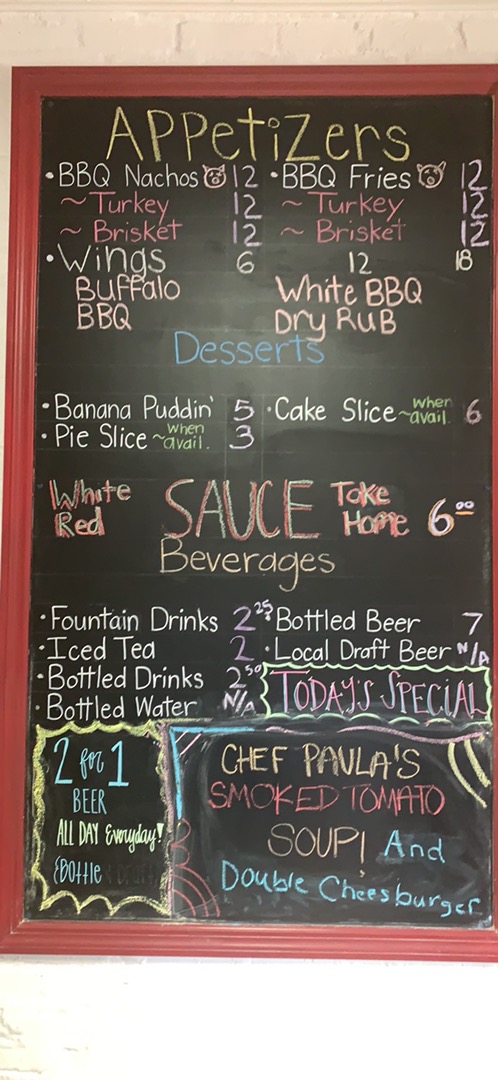 APPetiZers
• BBQ Nachos 12 • BBQ Fries 12
~ Turkey 12 ~ Turkey 12
~ Brisket 12 ~ Brisket 12
• Wings 6 12 18
Buffalo White BBQ
BBQ Dry RuB
Desserts
• Banana Puddin' 5 • Cake Slice ~when avail. 6
• Pie Slice ~when avail. 3
White SAUCE Take
Red Home 6.00
Beverages
• Fountain Drinks 2.25 • Bottled Beer 7
• Iced Tea 2 • Local Draft Beer N/A
• Bottled Drinks 2.50
• Bottled Water N/A
TODAY'S SPECIAL
2 for 1
BEER
ALL DAY Everyday!
Bottle
CHEF PAULA'S
SMOKED TOMATO
SOUP! And
Double Cheesburger